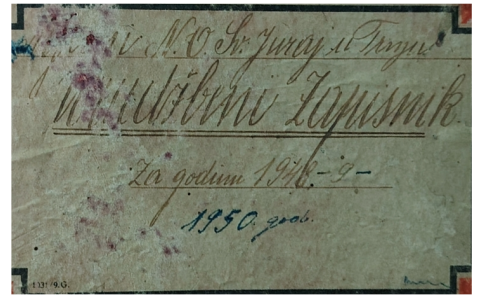 N. O. Sv. Juraj u Trnju
Urudžbeni Zapisnik
Za godinu 1948-9-
1950. god.